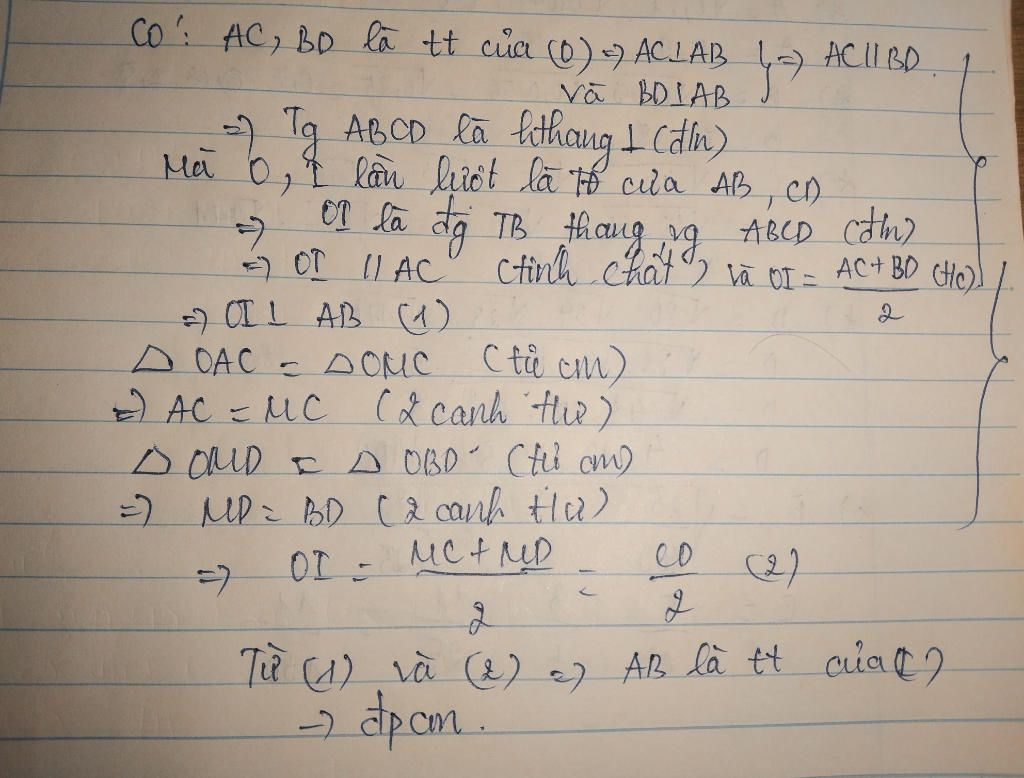 Có: AC, BD là tt của (O) => AC⊥AB } => AC//BD.
và BD⊥AB
=> Tg ABCD là hthang ⊥ (đ/n)
Mà O, I lần lượt là TĐ của AB, CD
=> OI là đg TB thang vg ABCD (đ/n)
=> OI // AC (tính chất) và OI = AC + BD / 2 (t/c)
=> OI ⊥ AB (1)
△ OAC = △ OMC (từ cm)
=> AC = MC (2 cạnh t/ư)
△ OMD = △ OBD (từ cm)
=> MD = BD (2 cạnh t/ư)
=> OI = MC + MD / 2 = CD / 2 (2)
Từ (1) và (2) => AB là tt của (I)
-> đpcm.